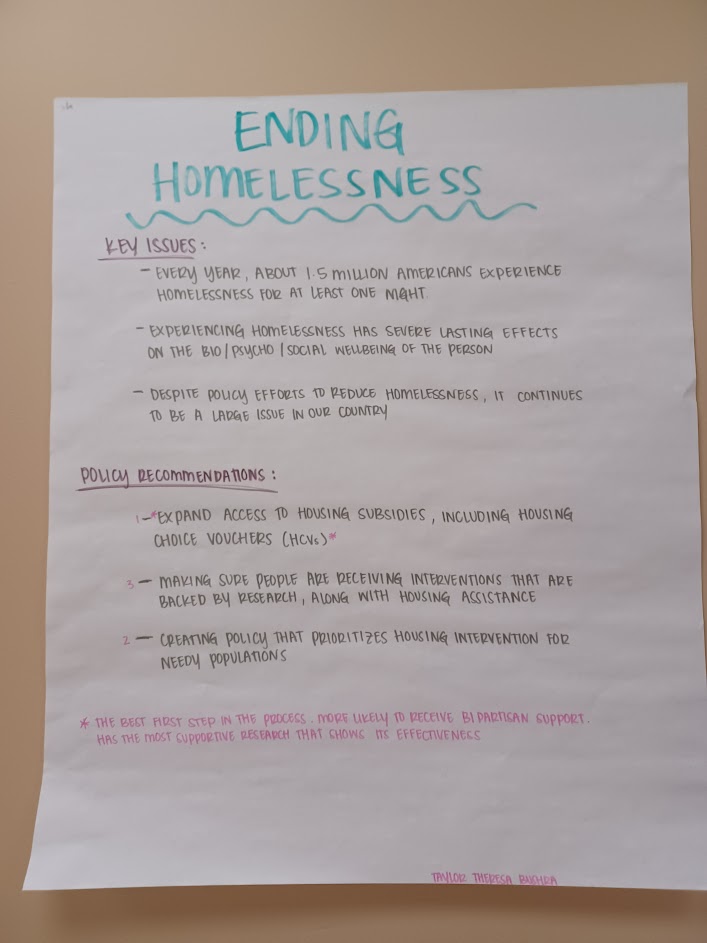 ENDING
HOMELESSNESS
KEY ISSUES:
- EVERY YEAR, ABOUT 1.5 MILLION AMERICANS EXPERIENCE
HOMELESSNESS FOR AT LEAST ONE NIGHT.
- EXPERIENCING HOMELESSNESS HAS SEVERE LASTING EFFECTS
ON THE BIO/PSYCHO/SOCIAL WELLBEING OF THE PERSON
- DESPITE POLICY EFFORTS TO REDUCE HOMELESSNESS, IT CONTINUES
TO BE A LARGE ISSUE IN OUR COUNTRY
POLICY RECOMMENDATIONS:
1 - *EXPAND ACCESS TO HOUSING SUBSIDIES, INCLUDING HOUSING
CHOICE VOUCHERS (HCVs)*
3 - MAKING SURE PEOPLE ARE RECEIVING INTERVENTIONS THAT ARE
BACKED BY RESEARCH, ALONG WITH HOUSING ASSISTANCE
2 - CREATING POLICY THAT PRIORITIZES HOUSING INTERVENTION FOR
NEEDY POPULATIONS
* THE BEST FIRST STEP IN THE PROCESS. MORE LIKELY TO RECEIVE BIPARTISAN SUPPORT.
HAS THE MOST SUPPORTIVE RESEARCH THAT SHOWS ITS EFFECTIVENESS
TAYLOR THERESA BUSHRA